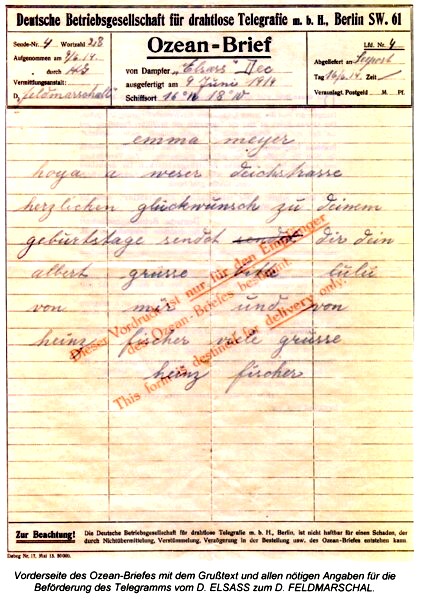 Deutsche Betriebsgesellschaft für drahtlose Telegrafie m. b. H., Berlin SW. 61
Sende-Nr. 4 Wortzahl
Aufgenommen am 9/6.14.
durch
Vermittlungsanstalt:
D. "Feldmarschall"
Ozean-Brief
von Dampfer „Elsass"
ausgefertigt am 9 Juni 1914
Schiffsort 16°N 18°W
Lfd. Nr. 4
Abgeliefert an Seepost
Tag 16/6.14. Zeit
Verauslagt. Postgeld M. Pf.
emma meyer
hoya a weser deichstrasse
herzlichen glückwünsch zü deinem
gebürtstage sendet sendet dir dein
albert grüsse bitte lülü
von mir ünd von
heinz fischer viele grüsse
heinz fischer
Dieser Vordruck ist nur für den Empfänger
des Ozean-Briefes bestimmt.
This form is destined for delivery only.
Zur Beachtung! Die Deutsche Betriebsgesellschaft für drahtlose Telegrafie m. b. H., Berlin, ist nicht haftbar für einen Schaden, der
durch Nichtübermittelung, Verstümmelung, Verzögerung in der Bestellung usw. des Ozean-Briefes entstehen kann.
Debeg Nr. 17. Mai 13. 50000.
Vorderseite des Ozean-Briefes mit dem Grußtext und allen nötigen Angaben für die
Beförderung des Telegramms vom D. ELSASS zum D. FELDMARSCHAL.